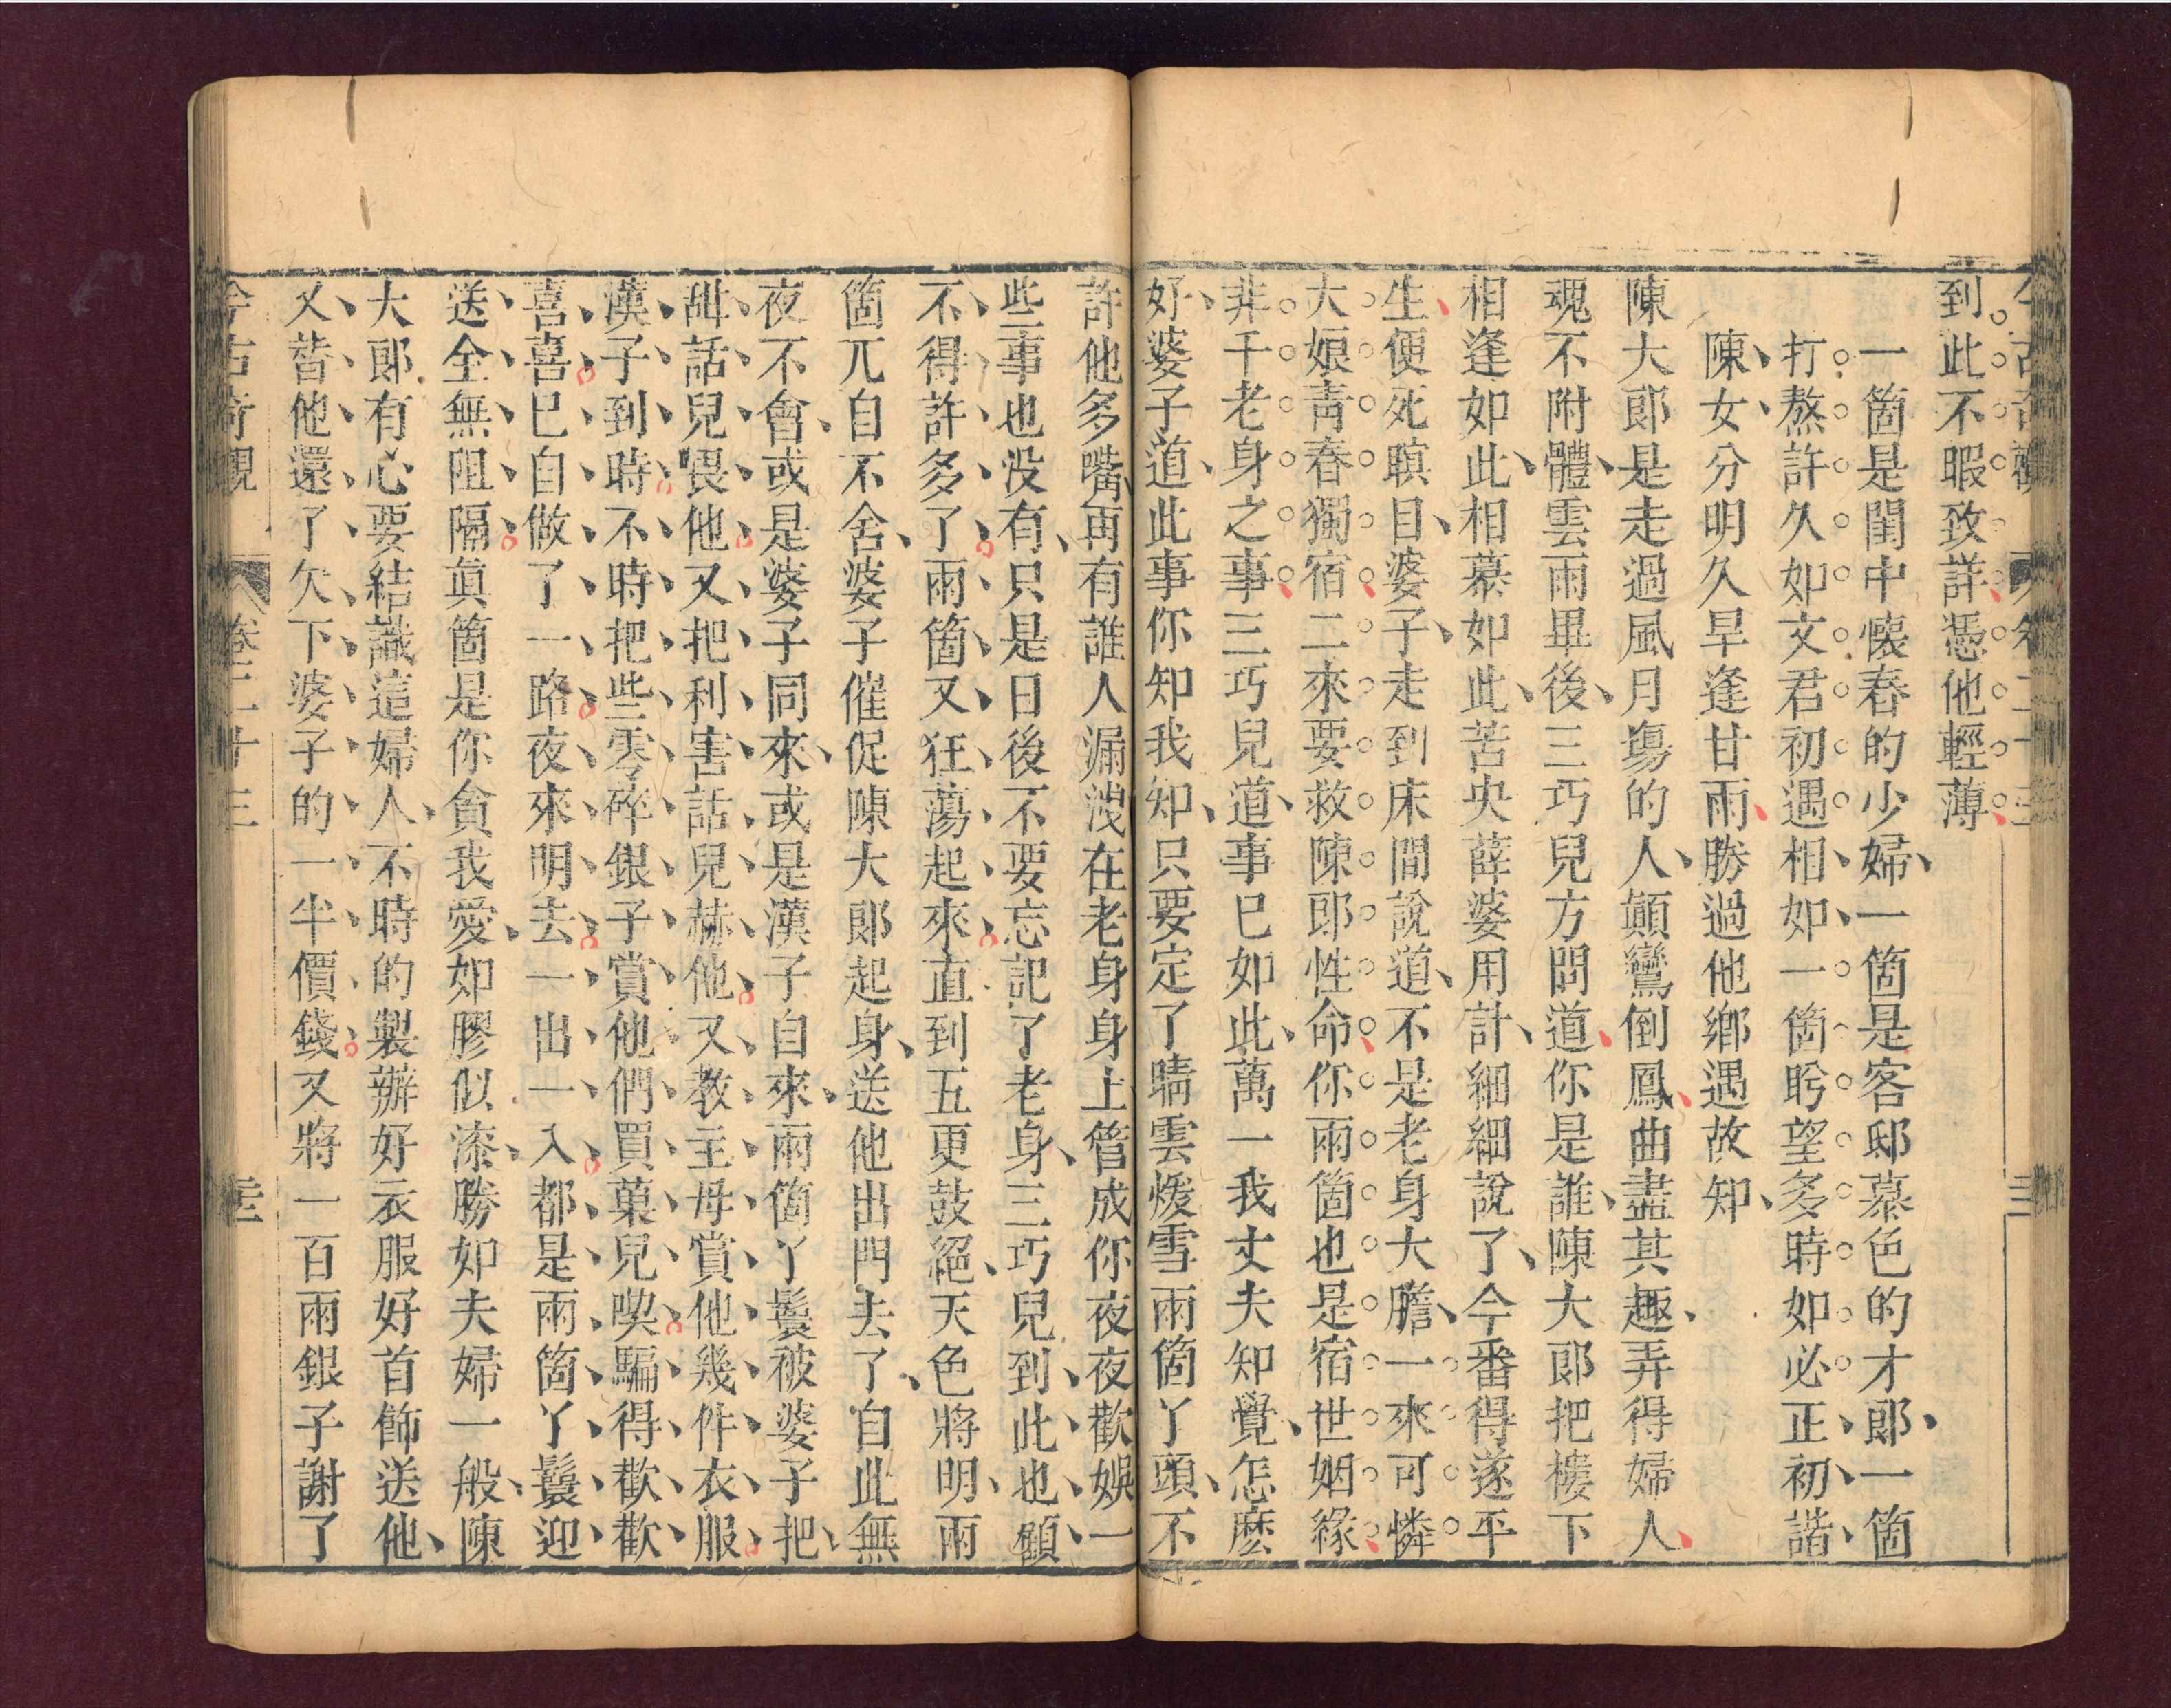 到此不暇致詳憑他輕薄
一箇是閨中懷春的少婦一箇是客邸慕色的才郎一箇
打熬許久如文君初遇相如一箇盻望多時如必正初諧
陳女分明久旱逢甘雨勝過他鄉遇故知
陳大郎是走過風月塲的人顛鸞倒鳳曲盡其趣弄得婦人
魂不附體雲雨畢後三巧兒方問道你是誰陳大郎把樓下
相逢如此相慕如此苦央薛婆用計細細說了今番得遂平
生便死瞑目婆子走到床間說道不是老身大膽一來可憐
大娘青春獨宿二來要救陳郎性命你兩箇也是宿世姻緣
非干老身之事三巧兒道事已如此萬一我丈夫知覺怎麽
好婆子道此事你知我知只要定了晴雲煖雪兩箇丫頭不
許他多嘴再有誰人漏洩在老身身上管成你夜夜歡娛一
些事也没有只是日後不要忘記了老身三巧兒到此也顧
不得許多了兩箇又狂蕩起來直到五更鼓絕天色將明兩
箇兀自不舍婆子催促陳大郎起身送他出門去了自此無
夜不會或是婆子同來或是漢子自來兩箇丫鬟被婆子把
甜話兒偎他又把利害話兒赫他又教主母賞他幾件衣服
漢子到時不時把些零碎銀子賞他們買菓兒喫騙得歡歡
喜喜已自做了一路夜來明去一出一入都是兩箇丫鬟迎
送全無阻隔眞箇是你貪我愛如膠似漆勝如夫婦一般陳
大郎有心要結識這婦人不時的製辦好衣服好首飾送他
又替他還了欠下婆子的一半價錢又將一百兩銀子謝了
今古奇觀 卷二十三